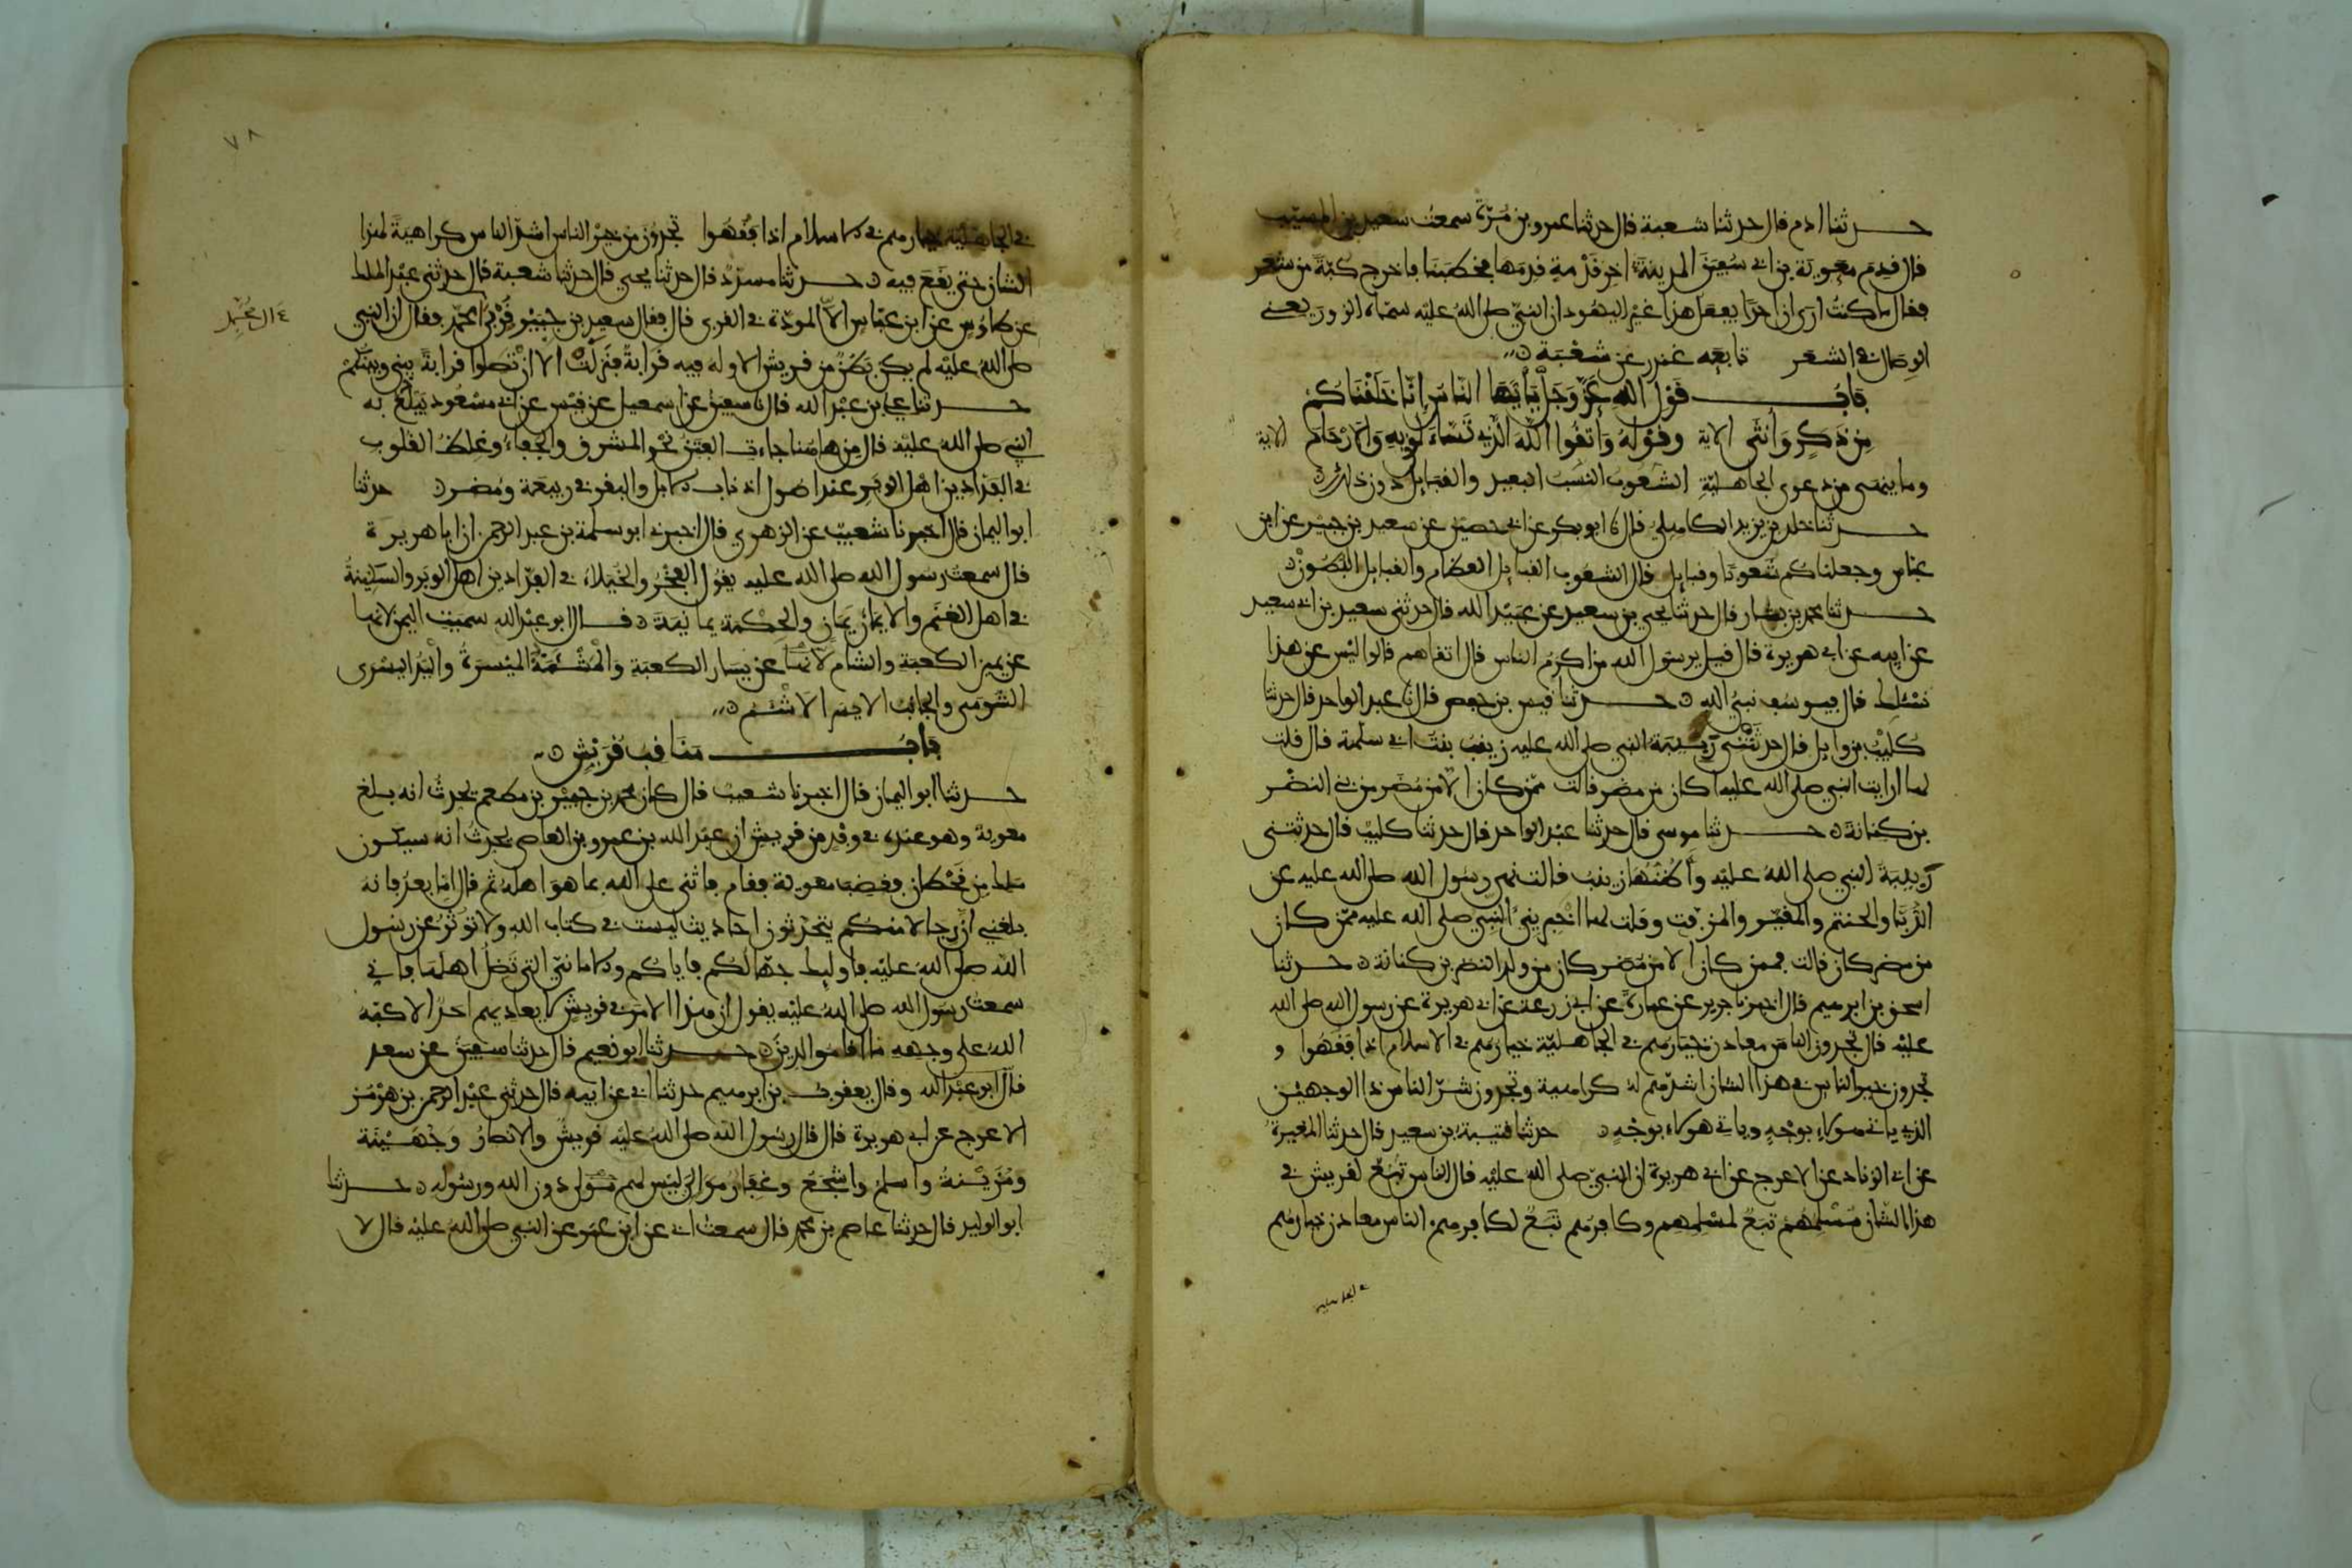 حدثنا ادم قال حدثنا شعبة قال حدثنا عمرو بن مُرّة سمعت سعيد بن المسيّب
قال قدِم معوية بن ابي سُفين المدينة اخر قَدْمةٍ قدِمها فخطبنا فاخرج كبّةً من شعر
فقال ما كنتُ ارى ان احدًا يفعل هذا غيْر اليهُود ان النبيّ صلى اللهُ عليْه سمّاه الزور يعني
الوِصال في الشعَر تابعَه غندر عن شعْبَة
بَابُ قوْل اللهِ عَزّ وَجَلّ يَأَيّهَا النّاسُ إنّا خَلَقْنَاكُم
مِن ذَكَرٍ وَأُنْثَى الاية وقوْلهُ وَاتقُوا اللّهَ الَّذِي تَسَّاءَلُونَ بهِ وَالارْحَام الاية
وما ينهى من دعوى الجاهليّةِ الشعُوبُ النسَبُ البعيد والقبايل دون ذلك
حدثنا خلد بن يزيد الكاهلي قال نا ابو بكر عن ابي حصين عن سعيد بن جبير عن ابن
عبّاس وجعلناكم شعوبًا وقبايل قال الشعُوب القبايل العظام والقبايل البُطُونْ
حدثنا محمد بن بشار قال حدثنا يحيى بن سعيد عن عبيْد الله قال حدثني سعيد بن ابي سعيد
عن ابيه عن ابي هريرة قال قيل يرسول الله من اكرمُ الناس قال اتقاهم قالوا ليْس عن هذا
نسْئلك قال فيوسُف نبيّ الله حدثنا قيس بن حفص قال نا عبد الواحد قال حدثنا
كليْبُ بن وايل قال حدثتْني رَبيبَة النبي صلى الله عليه زينبُ بنتُ ابي سلمة قال قلت
لها ارايت النبي صلى الله عليه اكان من مضر قالت ممّن كان الّا من مُضَر من بني النضْر
بن كنانة حدثنا موسى قال حدثنا عبْد الواحد قال حدثنا كليْب قال حدثتني
رَبِيبَة النبي صلى اللهُ عليْه وأظُنّهَا زينبُ قالت نهى رسُول الله صلى الله عليه عن
الدُّبَّا والحنتم والمقيّر والمزفّت وقلت لها اخبريني النبي صلى الله عليه ممّن كان
من مضر كان قالت فممن كان الا من مُضر كان من ولد النضر بن كنانة حدثنا
اسحق بن ابرهيم قال اخبرنا جرير عن عمارة عن ابي زرعة عن ابي هريرة عن رسول الله صلى الله
عليْه قال تجدون الناسَ معادن خيارهم في الجاهليّة خيارهم في الاسلام اذا فقهُوا و
تجدون خير الناس في هذا الشان اشدّهم له كراهية وتجدون شرّ الناس ذا الوجهيْن
الذي ياتي هولاءِ بوجْهٍ وياتي هولاءِ بوجْهٍ حدثنا قتيبة بن سعيد قال حدثنا المغيرة
عن ابي الزناد عن الاعرج عن ابي هريرة ان النبيّ صلى الله عليْه قال الناس تبَعٌ لقريش في
هذا الشان مُسْلمهمْ تبَعٌ لمسْلمهم وكافرهم تبَعٌ لكافرهم الناس معادن خيارهم
في الجاهلية
٧٨
في الجاهليّة خيارهم في الاسلام اذا فقُهُوا تجدون من خيْر الناس اشدّ الناس كراهيةً لهذا
الشان حتى يقَع فيه حدثنا مسدّد قال حدثنا يحيى قال حدثنا شعبة قال حدثني عبْد الملك
عن طاوُس عن ابن عبّاس الّا المودّة في القربى قال فقال سعيد بن جُبيْر قُرْبى محمّد فقال ان النبي
ءال محمّد
صلى اللهُ عليْه لم يكن بَطْنٌ من قريش الا وله فيه قَرابةٌ فنزلتْ الا ان تصلوا قرابةً بيني وبينكمْ
حدثنا علي بن عبْد الله قال نا سفين عن اسمعيل عن قيْس عن ابي مسْعُود يَبْلغُ به
النبي صلى اللهُ عليْه قال مِن هاهُنا جاءت الفتنُ نحْو المشرق والجفاءُ وغِلظُ القلوب
في الفدّادين اهْل الوبَر عند اصُول اذناب الابل والبقر في ربيعَة ومُضر حدثنا
ابو اليمان قال اخبرنا شعيْب عن الزهري قال اخبرني ابو سلمة بن عبد الرحمن ان ابا هريرة
قال سمعت رسُول الله صلى الله عليه يقولُ الفخْرُ والخُيَلاءُ في الفدّادين اهل الوبَر والسكينةُ
في اهل الغنَم والايمانُ يَمانٍ والحِكْمة يمانيَة قال ابو عبْد الله سميَت اليمن لانها
عن يمين الكعبة والشام لأنهَا عن يسار الكعبَة وَالمشْئمَةُ الميْسرَةُ واليَدُ اليسْرى
الشومَى والجانبُ الايسَر الاشْئَم
بَابُ مَنَاقِب قُرَيْش
حدثنا ابو اليمان قال اخبرنا شعيبٌ قال كان محمد بن جبيْر بن مطعم يحدث انه بلغ
معوية وهو عنده في وفْدٍ من قريش ان عبْد الله بن عمرو بن العاصي يحدثُ انه سيكون
ملك مِن قحْطان فغضِبَ معوية فقام فاثنى على الله بما هوَ اهله ثم قال امّا بعدُ فانه
بلغني انّ رجالا منكم يتحدّثون احاديث ليست في كتاب الله ولا توثرُ عن رسُول
الله صلى اللهُ عليْه فاوليك جهّالكُم فاياكُم والامانيّ التي تُضلّ اهلَهَا فاني
سمعتُ رسُول الله صلى اللهُ عليْه يقول ان هذا الامرَ في قريش لا يعاديهم احدٌ الا كبّهُ
اللهُ على وجهه ما اقامُوا الدين حدثنا ابو نعيم قال حدثنا سفين عن سعد
قال ابو عبْد الله وقال يعقوب بن ابرهيم حدثنا ابي عن ابيه قال حدثني عبْد الرحمن بن هرْمز
الاعرج عن ابي هريرة قال قال رسُول الله صلى اللهُ عليْه قريشٌ والانصارُ وَجُهَيْنَة
ومُزيْنةُ واسلمُ واشجَعُ وغفارُ مَوَاليَّ ليْس لهم مَوْلى دون الله ورسُوله حدثنا
ابو الوليد قال حدثنا عاصم بن محمد قال سمعت ابي عن ابن عمر عن النبي صلى اللهُ عليْه قال لا